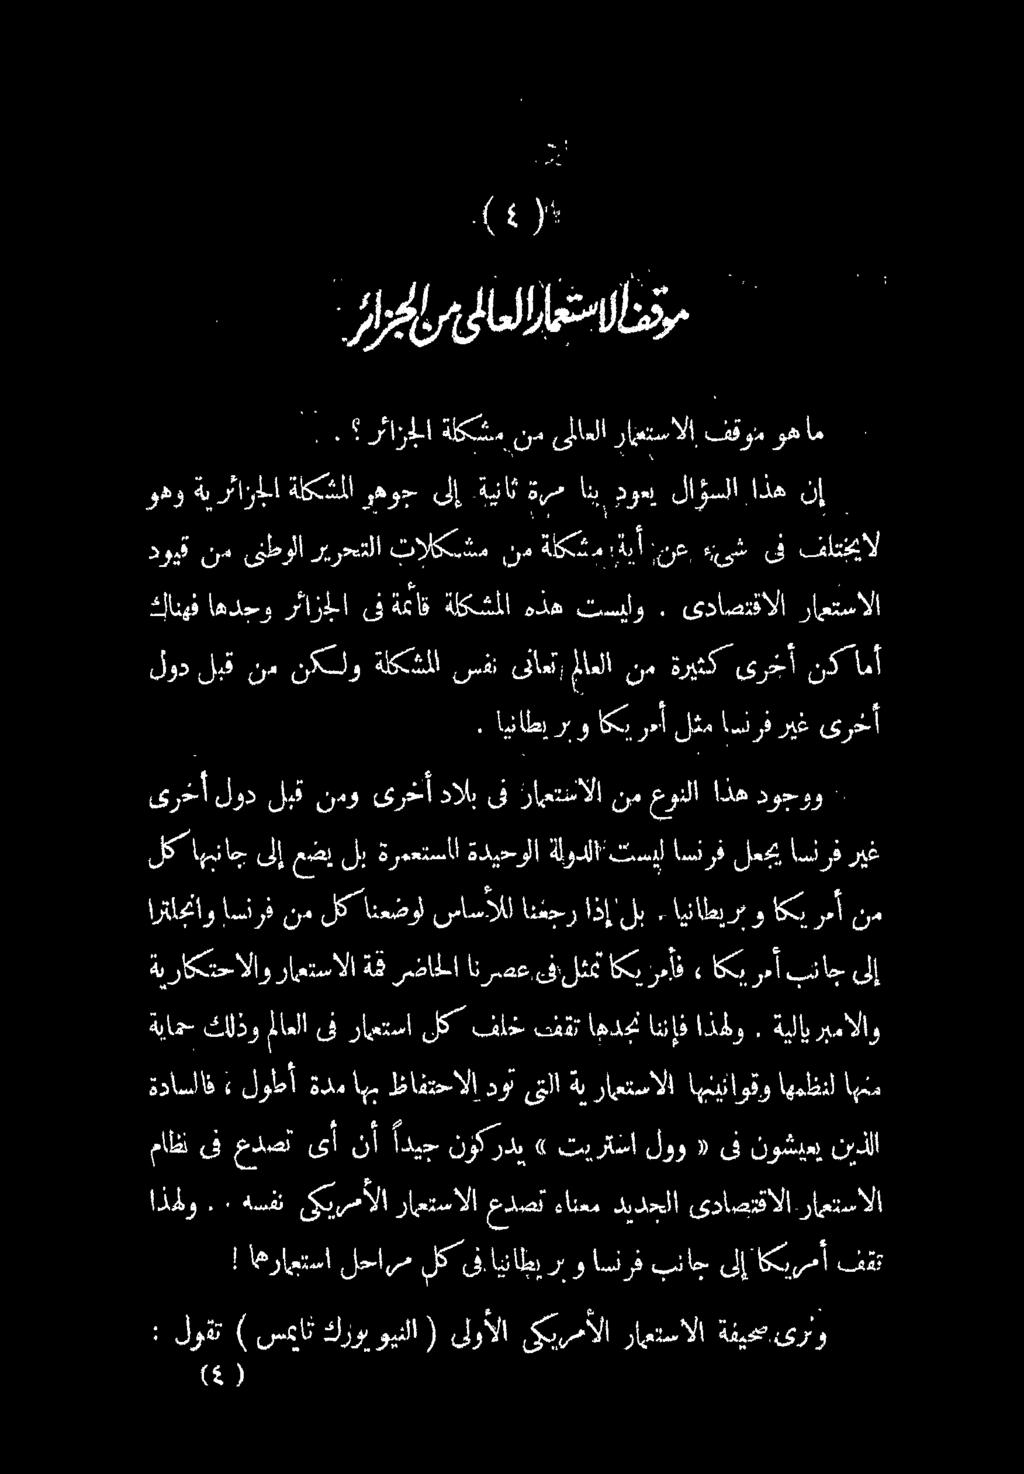 ( ٤ )
موقف الاستعمار العالمى من الجزائر
ما هو موقف الاستعمار العالمى من مشكلة الجزائر ؟ .
إن هذا السؤال يعود بنا مرة ثانية إلى جوهر المشكلة الجزائرية وهو
لايختلف فى شىء عن أية مشكلة من مشكلات التحرير الوطنى من قيود
الاستعمار الاقتصادى . وليست هذه المشكلة قائمة فى الجزائر وحدها فهناك
أماكن أخرى كثيرة من العالم تعانى نفس المشكلة ولكن من قبل دول
أخرى غير فرنسا مثل أمريكا وبريطانيا .
ووجود هذا النوع من الاستعمار فى بلاد أخرى ومن قبل دول أخرى
غير فرنسا يجعل فرنسا ليست الدولة الوحيدة المستعمرة بل يضع إلى جانبها كل
من أمريكا وبريطانيا . بل إذا رجعنا للأساس لوضعنا كل من فرنسا وانجلترا
إلى جانب أمريكا ، فأمريكا تمثل فى عصرنا الحاضر قمة الاستعمار والاحتكارية
والامبريالية . ولهذا فإننا نجدها تقف خلف كل استعمار فى العالم وذلك حماية
منها لنظمها وقوانينها الاستعمارية التى تود الاحتفاظ بها مدة أطول ، فالسادة
الذين يعيشون فى « وول استريت » يدركون جيداً أن أى تصدع فى نظام
الاستعمار الاقتصادى الجديد معناه تصدع الاستعمار الأمريكى نفسه . . ولهذا
تقف أمريكا إلى جانب فرنسا وبريطانيا فى كل مراحل استعمارهما !
ونرى صحيفة الاستعمار الأمريكى الأولى ( النيويورك تايمس ) تقول :
( ٤ )